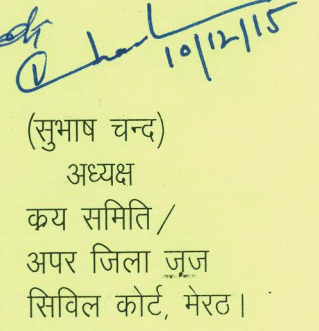 10/12/15
(सुभाष चन्द)
अध्यक्ष
कय समिति /
अपर जिला जज
सिविल कोर्ट, मेरठ।